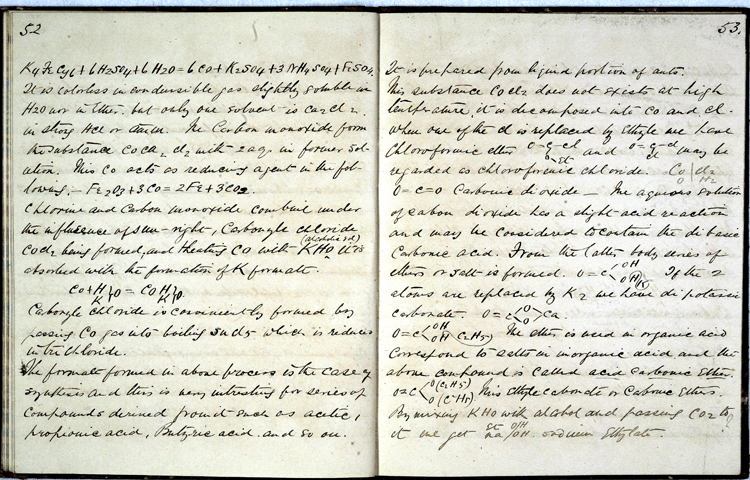 52
K4FeCy6 + 6H2SO4 + 6H2O = 6CO + K2SO4 + 3NH4SO4 + FeSO4.
It is colorless incondensible gas slightly soluble in
H2O nor in ether. but only one solvent is Ca2Cl2.
in strong HCl or The Carbon monoxide form
the substance CoCa2Cl2 with 2aq. in former sol-
ation. This Co acts as reducing agent in the fol-
lowing. – Fe2O3 + 3CO = 2Fe + 3CO2.
Chlorine and Carbon monoxide combine under
the influence of sun-right, Carbongle chloride
COCl2 being formed, and heating CO with KHO (alcoholic sol) it is
absorbed with the formation of K formate.
CO + H K}O = COH K}O.
Carbongle chloride is conveniently formed by
passing Co gas into boiling SbCl5 which is reduced
in trichloride.
The formate formed in above process is the case of
synthesis and this is very intresting for series of
compounds derived from it such as acetic,
propionic acid, Butyric acid. and so on.
53.
It is prepared from liquid portion of
This substance CoCl2 does not exists at high
temperature, it is decomposed into CO and Cl.
when one of the Cl is replaced by Ethyle we have
Chloroformic ether O=C–Cl O–Et and O=C–Cl Cl may be
regarded as chloroformic chloride. Co Cl2 O H2
O=C=O Carbonic dioxide – The aqueous solution
of carbon dioxide has a slight acid reaction
and may be considered to contain the di basic
Carbonic acid. From the latter body series of
ethers or salt is formed. O=C< OH OH(K) If the 2
atoms are replaced by K2 we have di potassic
carbonate. O=C<O O>Ca.
O=C< OH OH (C2H5) The ether is used in organic acid
correspond to salts in inorganic acid and the
above compound is called acid carbonic Ether.
O=C< O(C2H5) O(C2H5) This Ethyle carbonate or Carbonic Ethers.
By mixing KHO with alcohol and passing CO2 to
it we get Et Na O/H OH sodium Ethylate.